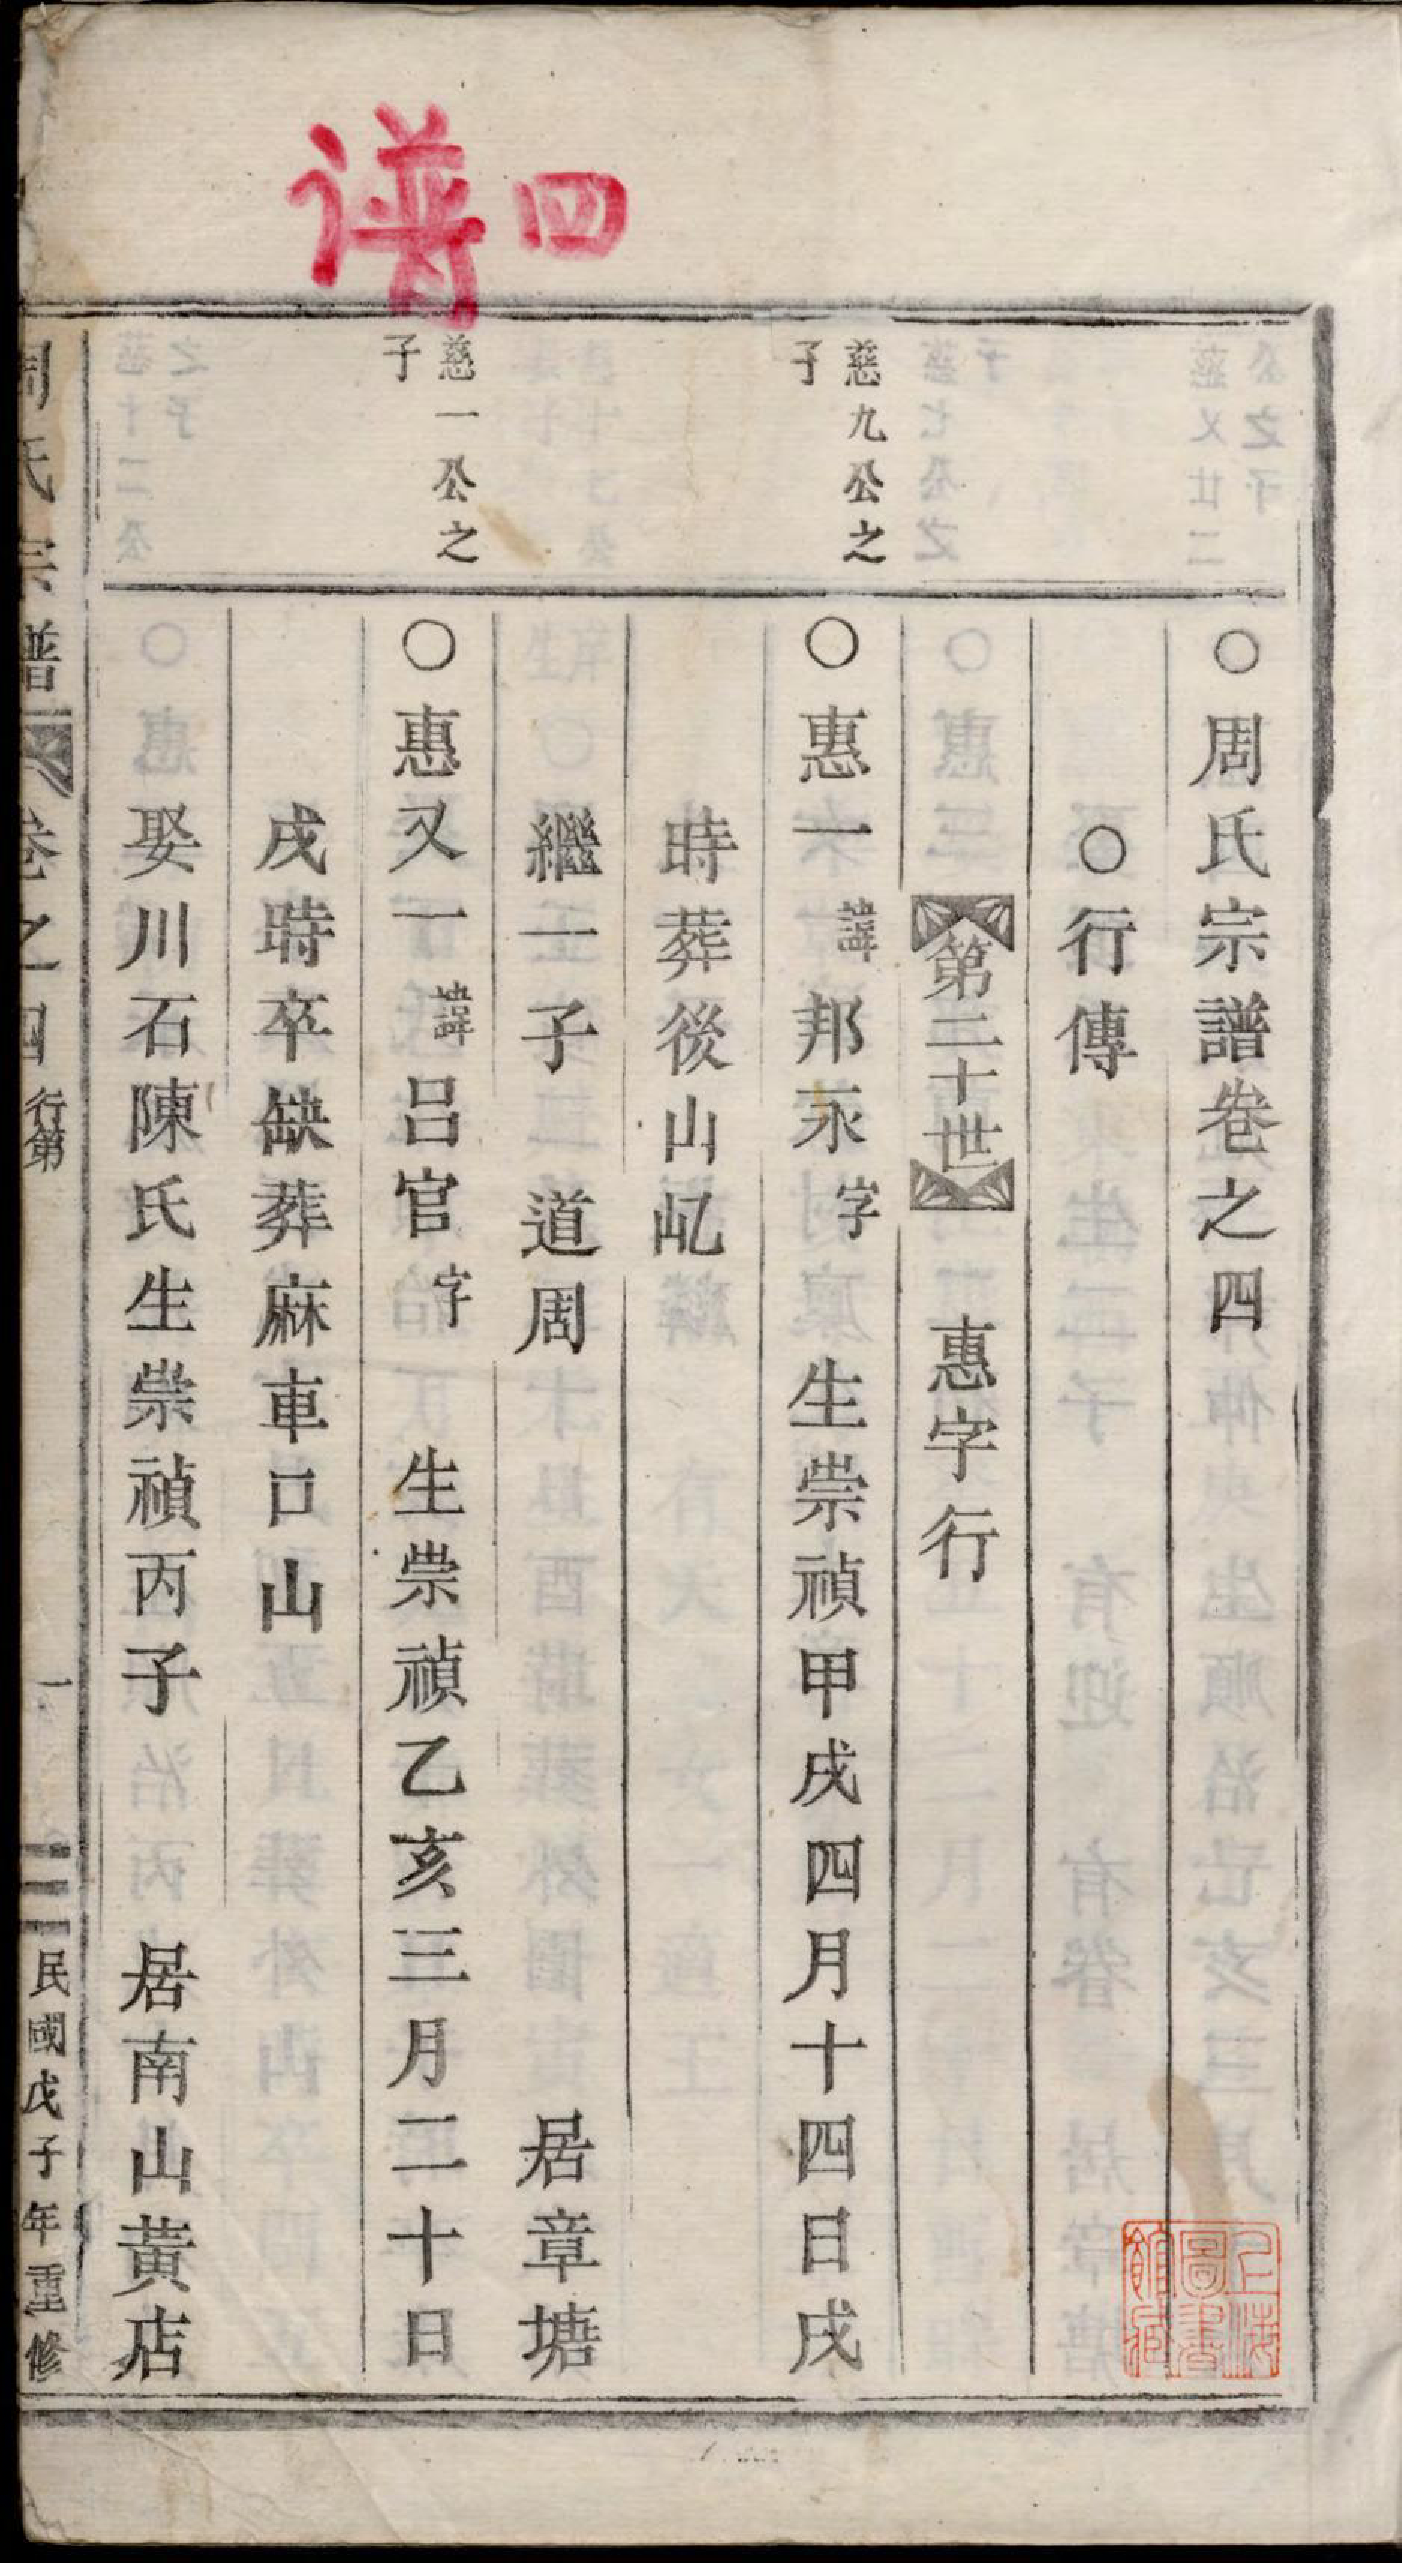 四譜
〇周氏宗譜卷之四
〇行傳
第二十世 惠字行
慈九公之
子
〇惠一諱邦永字 生崇禎甲戌四月十四日戌
時葬後山屼
繼一子 道周 居章塘
慈一公之
子
〇惠又一諱呂官字 生崇禎乙亥三月二十日
戌時卒缺葬麻車口山
娶川石陳氏生崇禎丙子 居南山黃店
周氏宗譜 卷之四 行第 一 民國戊子年重修
上海圖書館藏